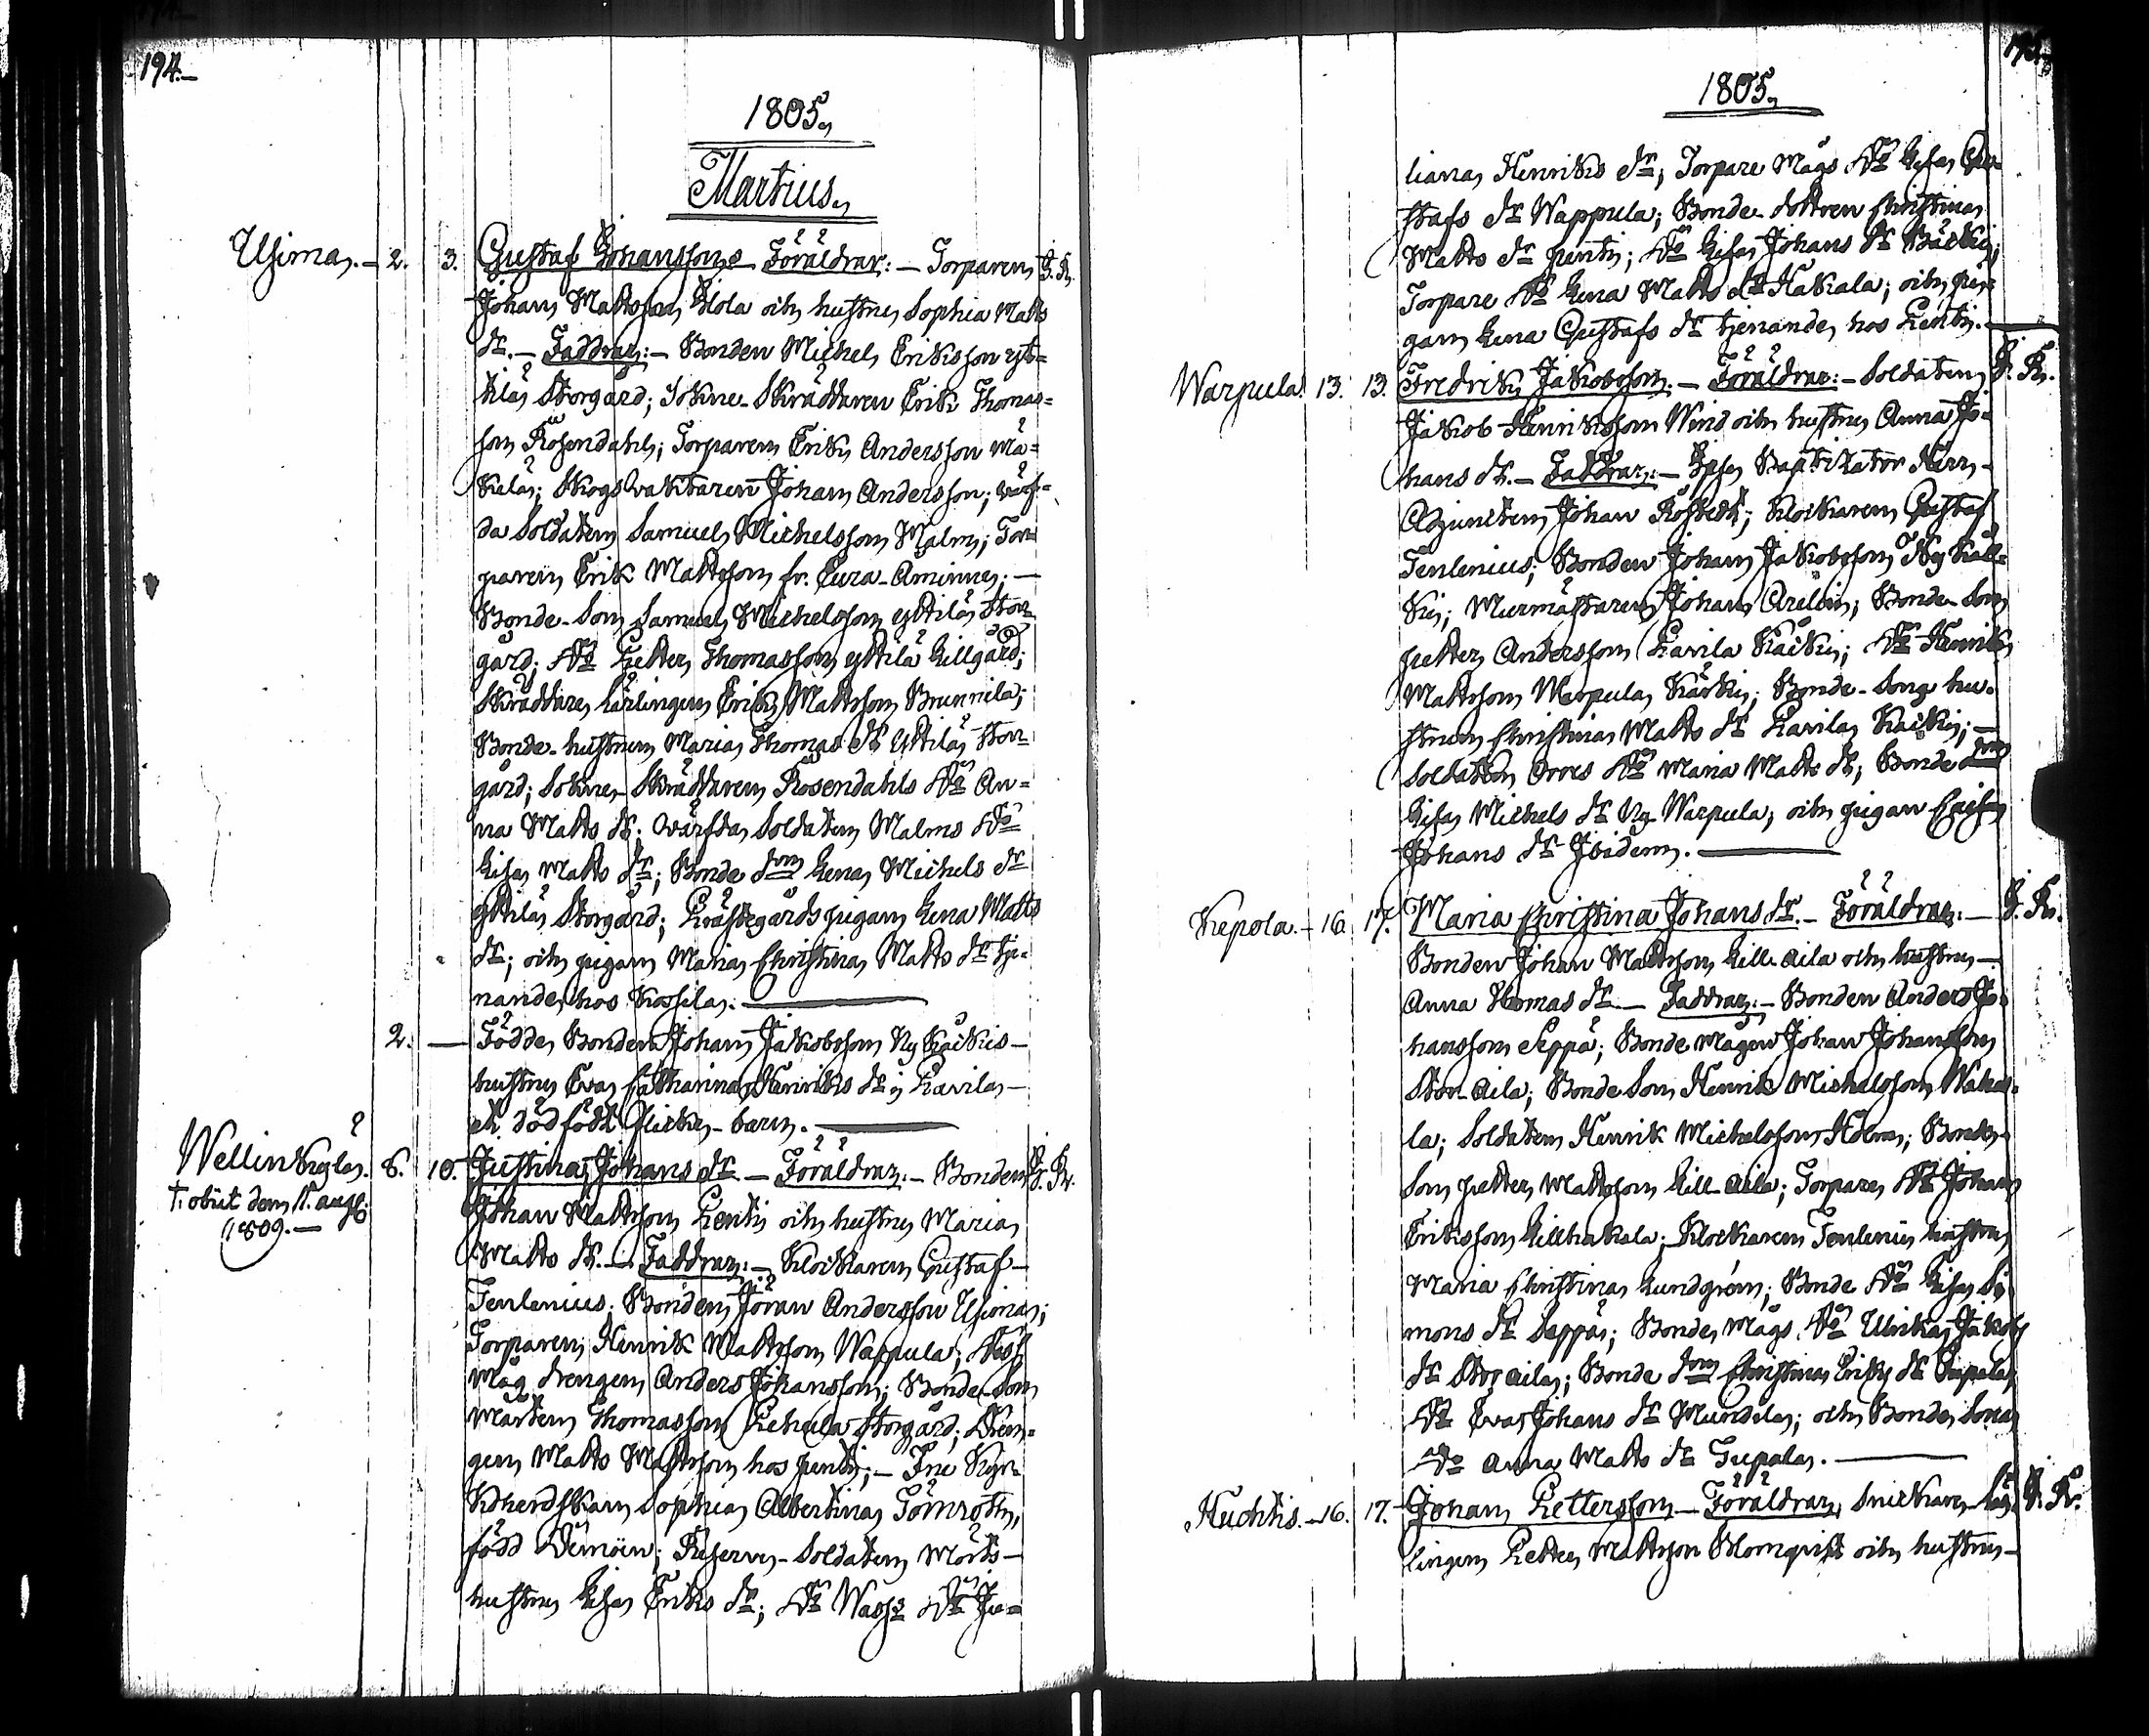 194.
1805.
Martius.
Usima. 2. 3. Gustaf Johansson. Föräldrar: Torparen J. R.
Johan Mattsson Klola och hustru Sophia Matts
dr. Faddrar: Bonden Michel Eriksson Yt=
tilä Storgård; Sokne-Skräddaren Erik Thomas=
son Rosendahl; Torparen Erik Andersson Mä=
kelä; Skogsvaktaren Johan Andersson; värf=
da Soldaten Samuel Michelsson Malm; Tor
paren Erik Mattsson fr. Eura-Aminne;
Bonde-Son Samuel Michelsson Yttilä Stor
gård; Do Petter Thomasson Yttilä Lillgård;
Skräddare Lärlingen Erik Mattsson Brunnila;
Bonde-hustrun Maria Thomas dr Yttilä Stor
gård; Sokne-Skräddaren Rosendahls Do An=
na Matts dr; Värfda Soldaten Malms Do
Lisa Matts dr; Bonde dom Lena Michels dr
Yttilä Storgård; Prästegårds pigan Lena Matts
dr; och pigan Maria Christina Matts dr tje=
nande hos Kossila.
2. — Födde Bonden Johan Jakobsson Ny Käikis
hustru Eva Catharina Henriks dr i Kavila
et dödfödt flicke-barn.
Wellinkylä. 8. 10. Justina Johans dr. Föräldrar. Bonden J. R.
† obiit dem 11. aug.
1809.
Johan Mattsson Pentti och hustru Maria
Matts dr. Faddrar: Klockaren Gustaf
Tenlenius; Bonden Jöran Andersson Usima;
Torparen Henrik Mattsson Wappula; Dess
måg drengen Anders Johansson; Bonde-Son
Mårten Thomasson Pehula Storgård; Dren=
gen Matts Mattsson hos Pentti; Fru Kyr=
koherdskan Sophia Albertina Tömroth,
född Demoen; Reserve-Soldaten Mörts
hustru Lisa Eriks dr; Do Wass Do Ju=
1805.
liana Henriks dr; Torpare Mågs Do Lisa Gu=
stafs dr Wappula; Bonde-dottren Christina
Matts dr Pentti; Do Lisa Johans dr Bäcki;
Torpare Do Lena Matts dr Hakala; och pi=
gan Lena Gustafs dr tjenande hos Pentti.
Warpula. 13. 13. Fredrik Jakobsson. Föräldrar: Soldaten J. R.
Jakob Henriksson Wind och hustru Anna Jo=
hans dr. Faddrar: Ipse Baptizator Herr
Adjuncten Johan Rostedt; Klockaren Gustaf
Tenlenius; Bonden Johan Jakobsson Ny Käi=
ki; Murmästaren Johan Arelin; Bonde-Son
Petter Andersson Kavila Käiki; Do Henrik
Mattsson Warpula Kärki; Bonde-Sons hu=
strun Christina Matts dr Kavila Käiki;
Soldaten Orres Do Maria Matts dr; Bonde dom
Lisa Michels dr Ny Warpula; och pigan Caisa
Johans dr Ibidem.
Kepola. 16. 17. Maria Christina Johans dr. Föräldrar: J. R.
Bonden Johan Mattsson Lill-Aila och hustru
Anna Thomas dr. Faddrar: Bonden Anders Jo=
hansson Seppä; Bonde Mågen Johan Johansson
Stor-Aila; Bonde Son Henrik Michelsson Waha=
la; Soldaten Henrik Michelsson Holm; Bonde
Son Petter Mattsson Lill-Aila; Torpare Do Johan
Eriksson Lillhakala; Klockaren Tenlenii hustru
Maria Christina Lundgren; Bonde Do Lisa Si=
mons dr Seppä; Bonde Mågs Do Ulrika Jakobs
dr Stor Aila; Bonde dom Christina Eriks dr
Do Eva Johans dr Mundila; och Bonde Sona
Do Anna Matts dr Tupala.
Huchtis. 16. 17. Johan Pettersson. Föräldrar, Snickare Lär J. R.
lingen Petter Mattsson Blomqvist och hustru